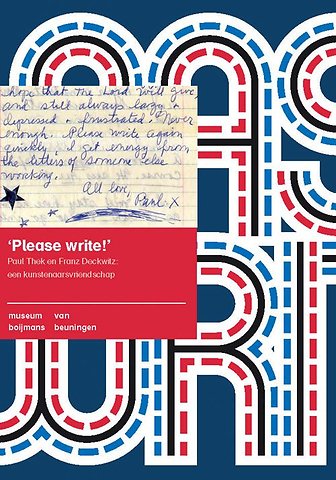 hope that the Lord will give
and still always lazy +
depressed + frustrated. Never
enough. Please write again
quickly. I get energy from
the letters of someone else
working.
All love,
Paul X
‘Please write!’
Paul Thek en Franz Deckwitz:
een kunstenaarsvriendschap
museum van
boijmans beuningen
EAS
WRIT